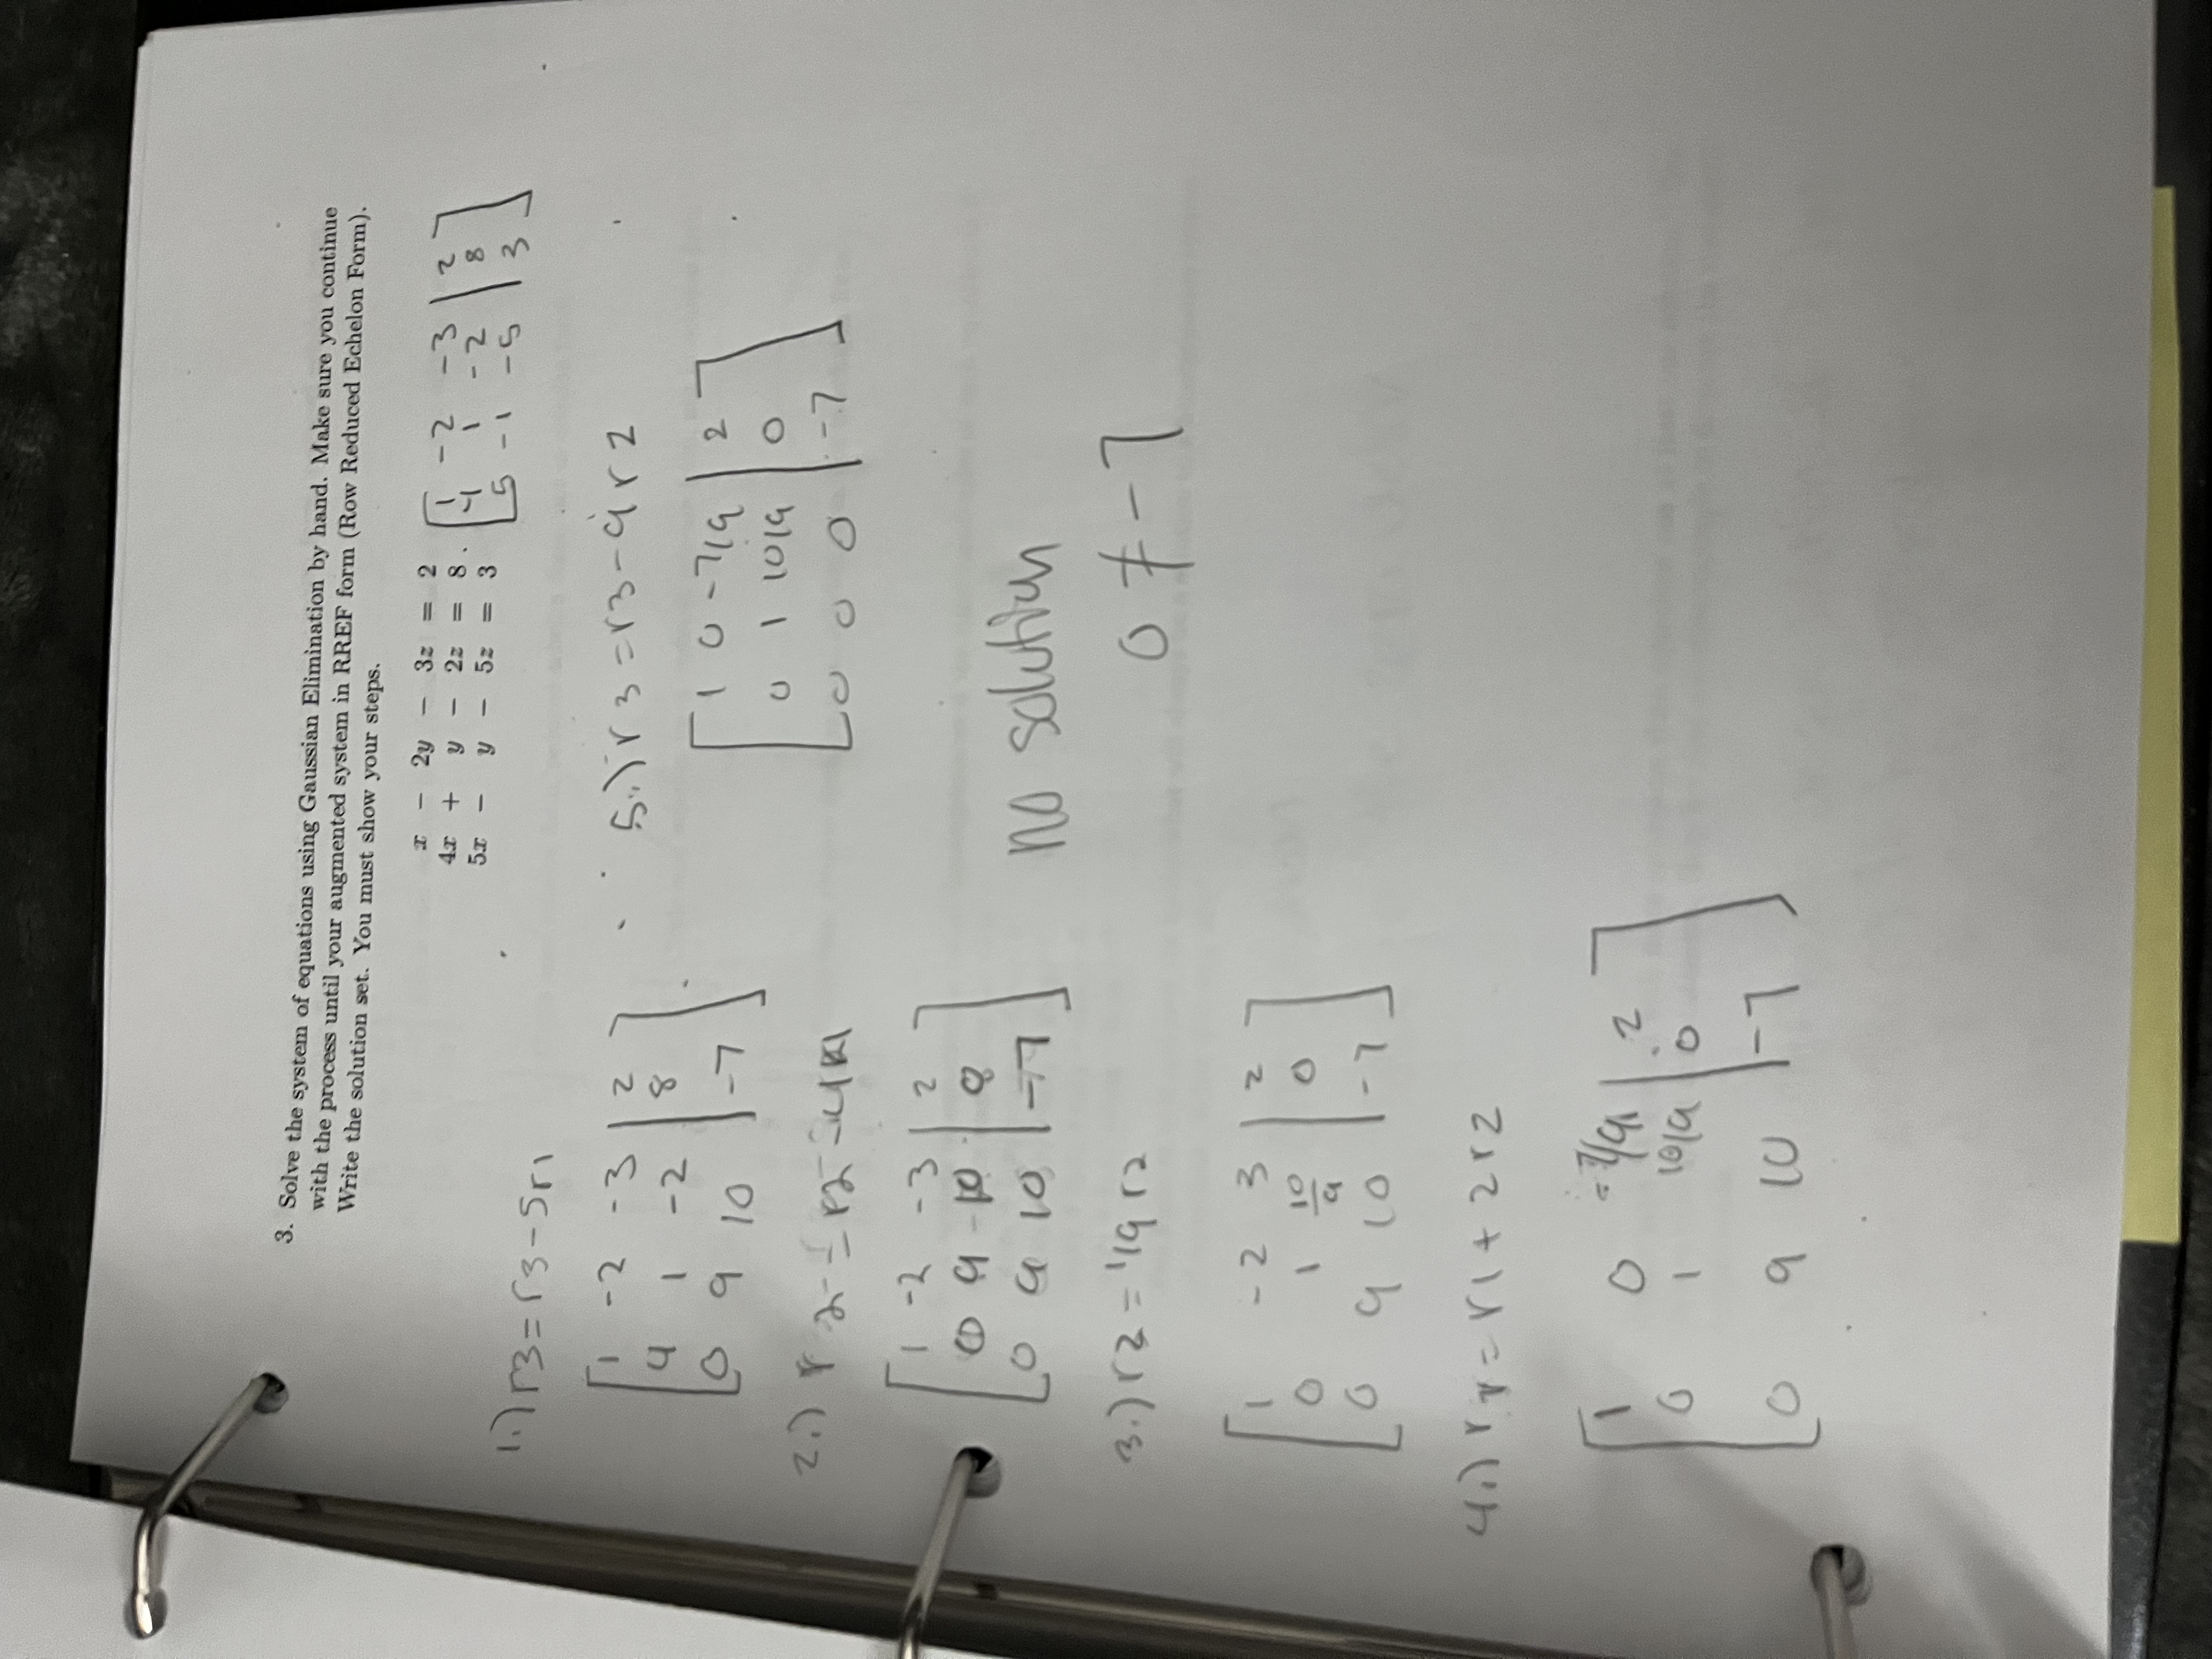 3. Solve the system of equations using Gaussian Elimination by hand. Make sure you continue
with the process until your augmented system in RREF form (Row Reduced Echelon Form).
Write the solution set. You must show your steps.
x − 2y − 3z = 2
4x + y − 2z = 8.
5x − y − 5z = 3
1 -2 -3 | 2
4 1 -2 | 8
5 -1 -5 | 3
1.) r3 = r3 - 5r1
1 -2 -3 | 2
4 1 -2 | 8
0 9 10 | -7
2.) r2 = r2 - 4r1
1 -2 -3 | 2
0 9 10 | 0
0 9 10 | -7
3.) r2 = 1/9 r2
1 -2 3 | 2
0 1 10/9 | 0
0 9 10 | -7
4.) r1 = r1 + 2r2
1 0 -7/9 | 2
0 1 10/9 | 0
0 9 10 | -7
5.) r3 = r3 - 9r2
1 0 -7/9 | 2
0 1 10/9 | 0
0 0 0 | -7
no solution
0 ≠ -7